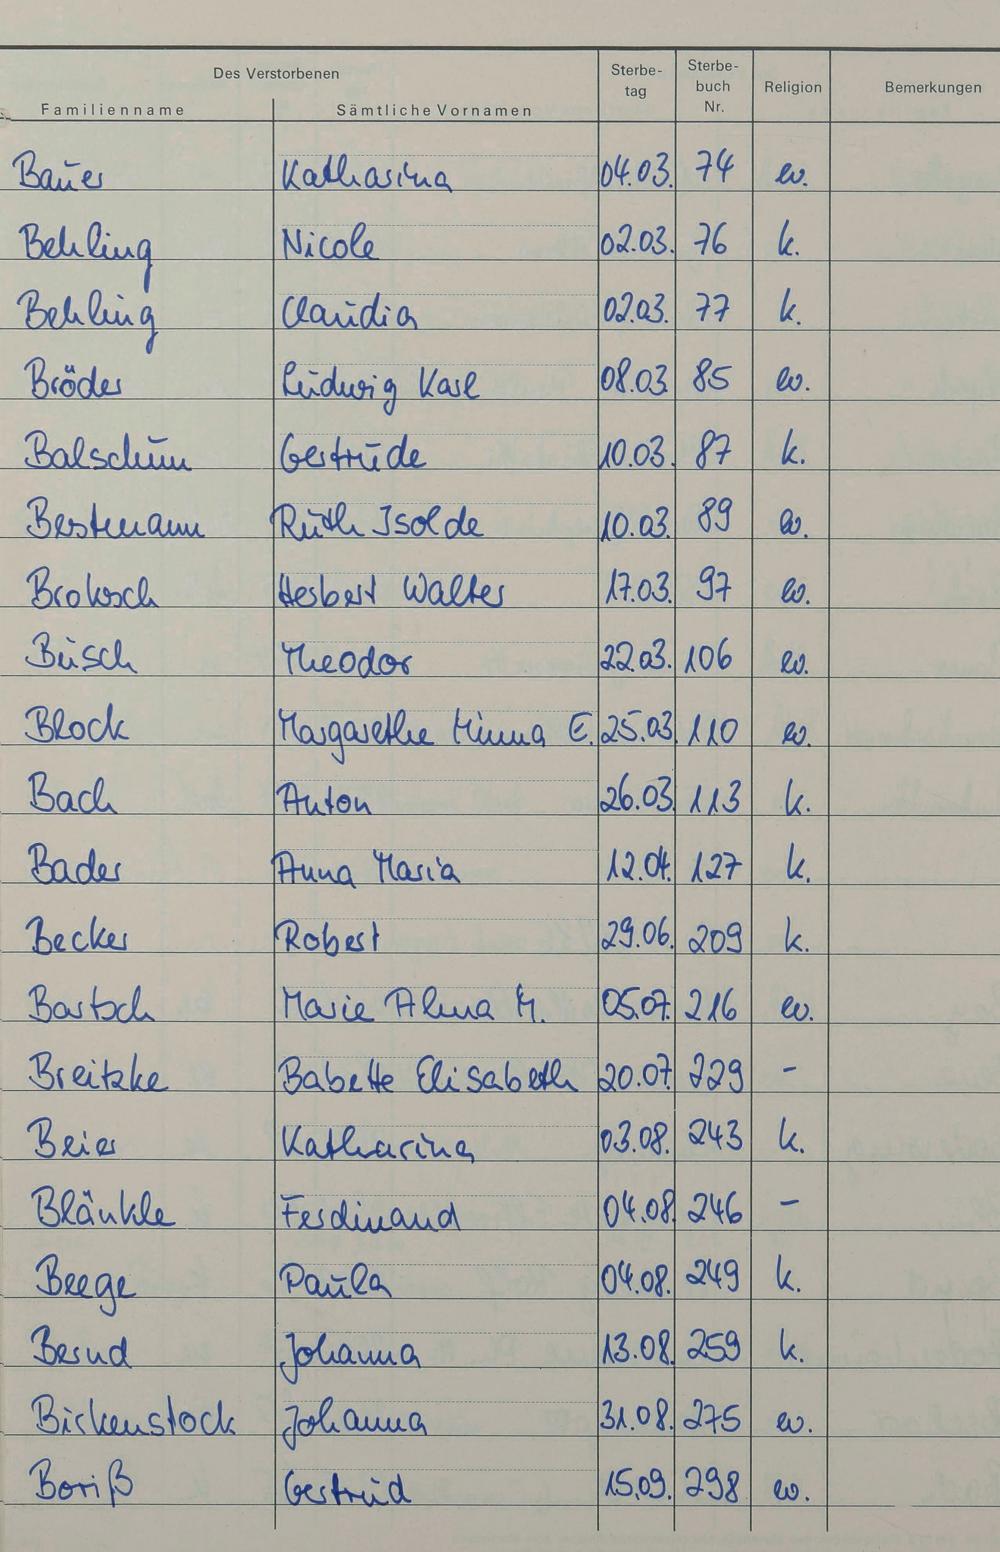 Des Verstorbenen
Familienname Sämtliche Vornamen Sterbe-tag Sterbe-buch Nr. Religion Bemerkungen
Bauer Katharina 04.03. 74 ev.
Behling Nicole 02.03. 76 k.
Behling Claudia 02.03. 77 k.
Bröder Ludwig Karl 08.03 85 ev.
Balschun Gertrude 10.03. 87 k.
Bestmann Ruth Isolde 10.03. 89 ev.
Broksch Herbert Walter 17.03. 97 ev.
Busch Theodor 22.03. 106 ev.
Block Margarethe Minna E. 25.03. 110 ev.
Bach Anton 26.03. 113 k.
Bader Anna Maria 12.04. 127 k.
Becker Robert 29.06. 209 k.
Bartsch Marie Alma M. 05.07. 216 ev.
Breitzke Babette Elisabeth 20.07. 229 -
Beier Katharina 03.08. 243 k.
Bläukle Ferdinand 04.08. 246 -
Beege Paula 04.08. 249 k.
Bernd Johanna 13.08. 259 k.
Birkenstock Johanna 31.08. 275 ev.
Boriß Gertrud 15.09. 298 ev.